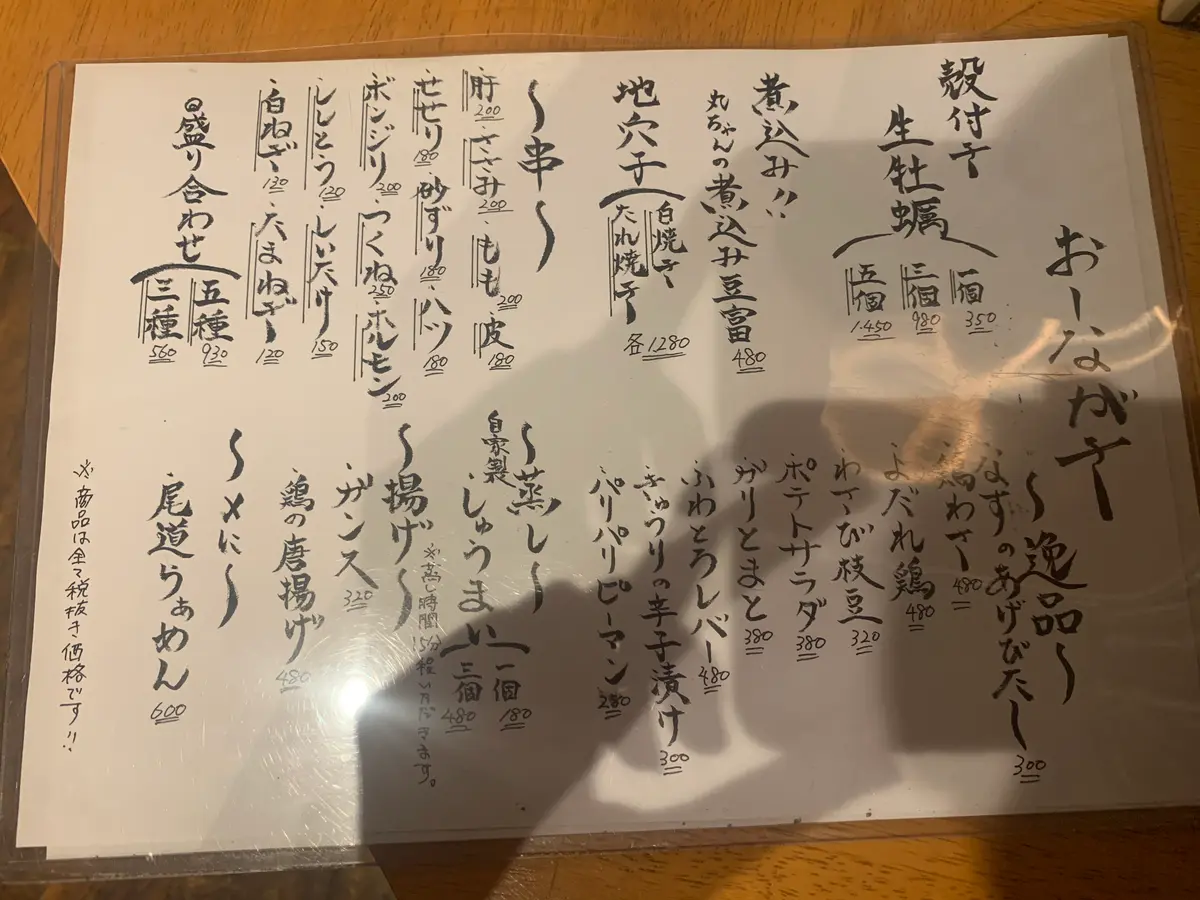 おしながき
殻付き
生牡蠣
一個 350
三個 980
五個 1.450
煮込み!!
丸ちゃんの煮込み豆富 480
地穴子
白焼き
たれ焼き
各1280
~串~
肝 200
ささみ 200
もも 200
皮 180
せせり 180
砂ずり 180
ハツ 180
ボンジリ 200
つくね 250
ホルモン 200
ししとう 120
しいたけ 150
白ねぎ 120
たまねぎ 120
盛り合わせ
五種 930
三種 560
~逸品~
なすのあげびたし 300
鶏わさ 480
よだれ鶏 480
わさび枝豆 320
ポテトサラダ 380
ガリとまと 380
ふわとろレバー 480
きゅうりの辛子漬け 300
パリパリピーマン 280
~蒸し~
自家製
しゅうまい
一個 180
三個 480
※蒸し時間15分程いただきます。
~揚げ~
ガンス 320
鶏の唐揚げ 480
~〆に~
尾道らぁめん 600
※商品は全て税抜き価格です!!